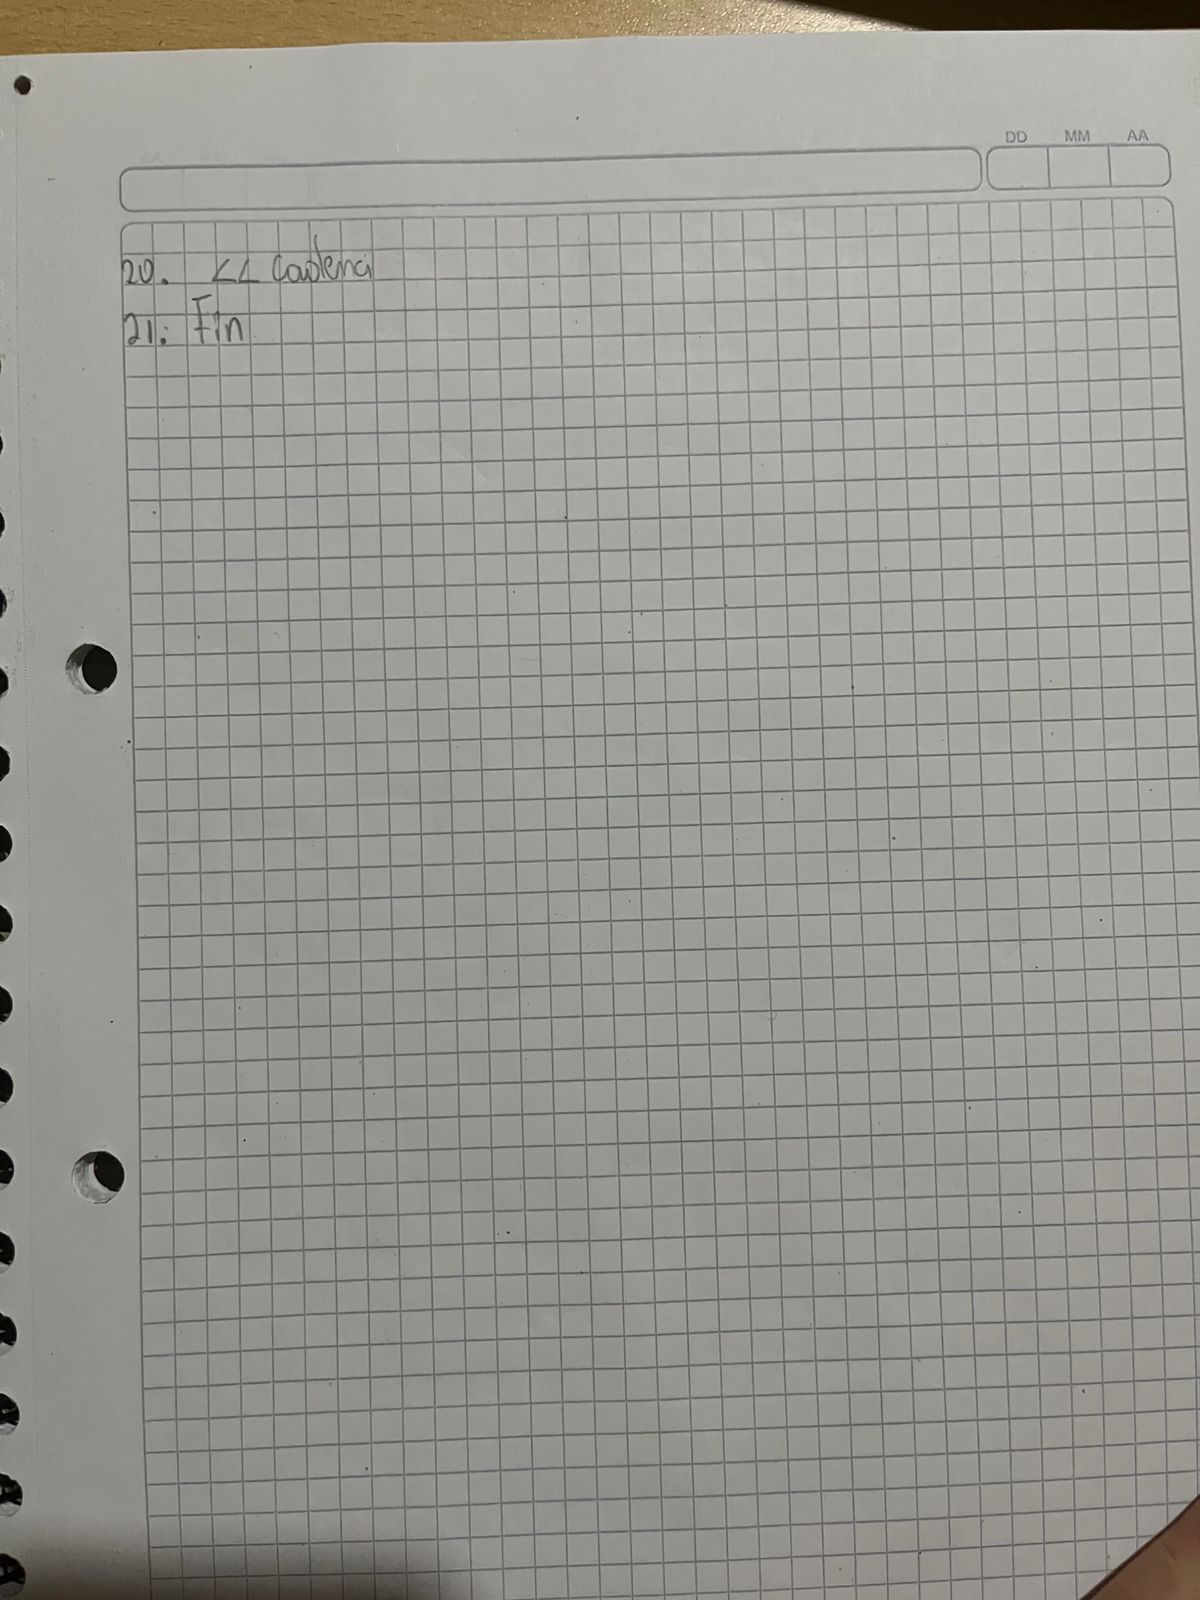 DD MM AA
20. << Cadena
21. Fin